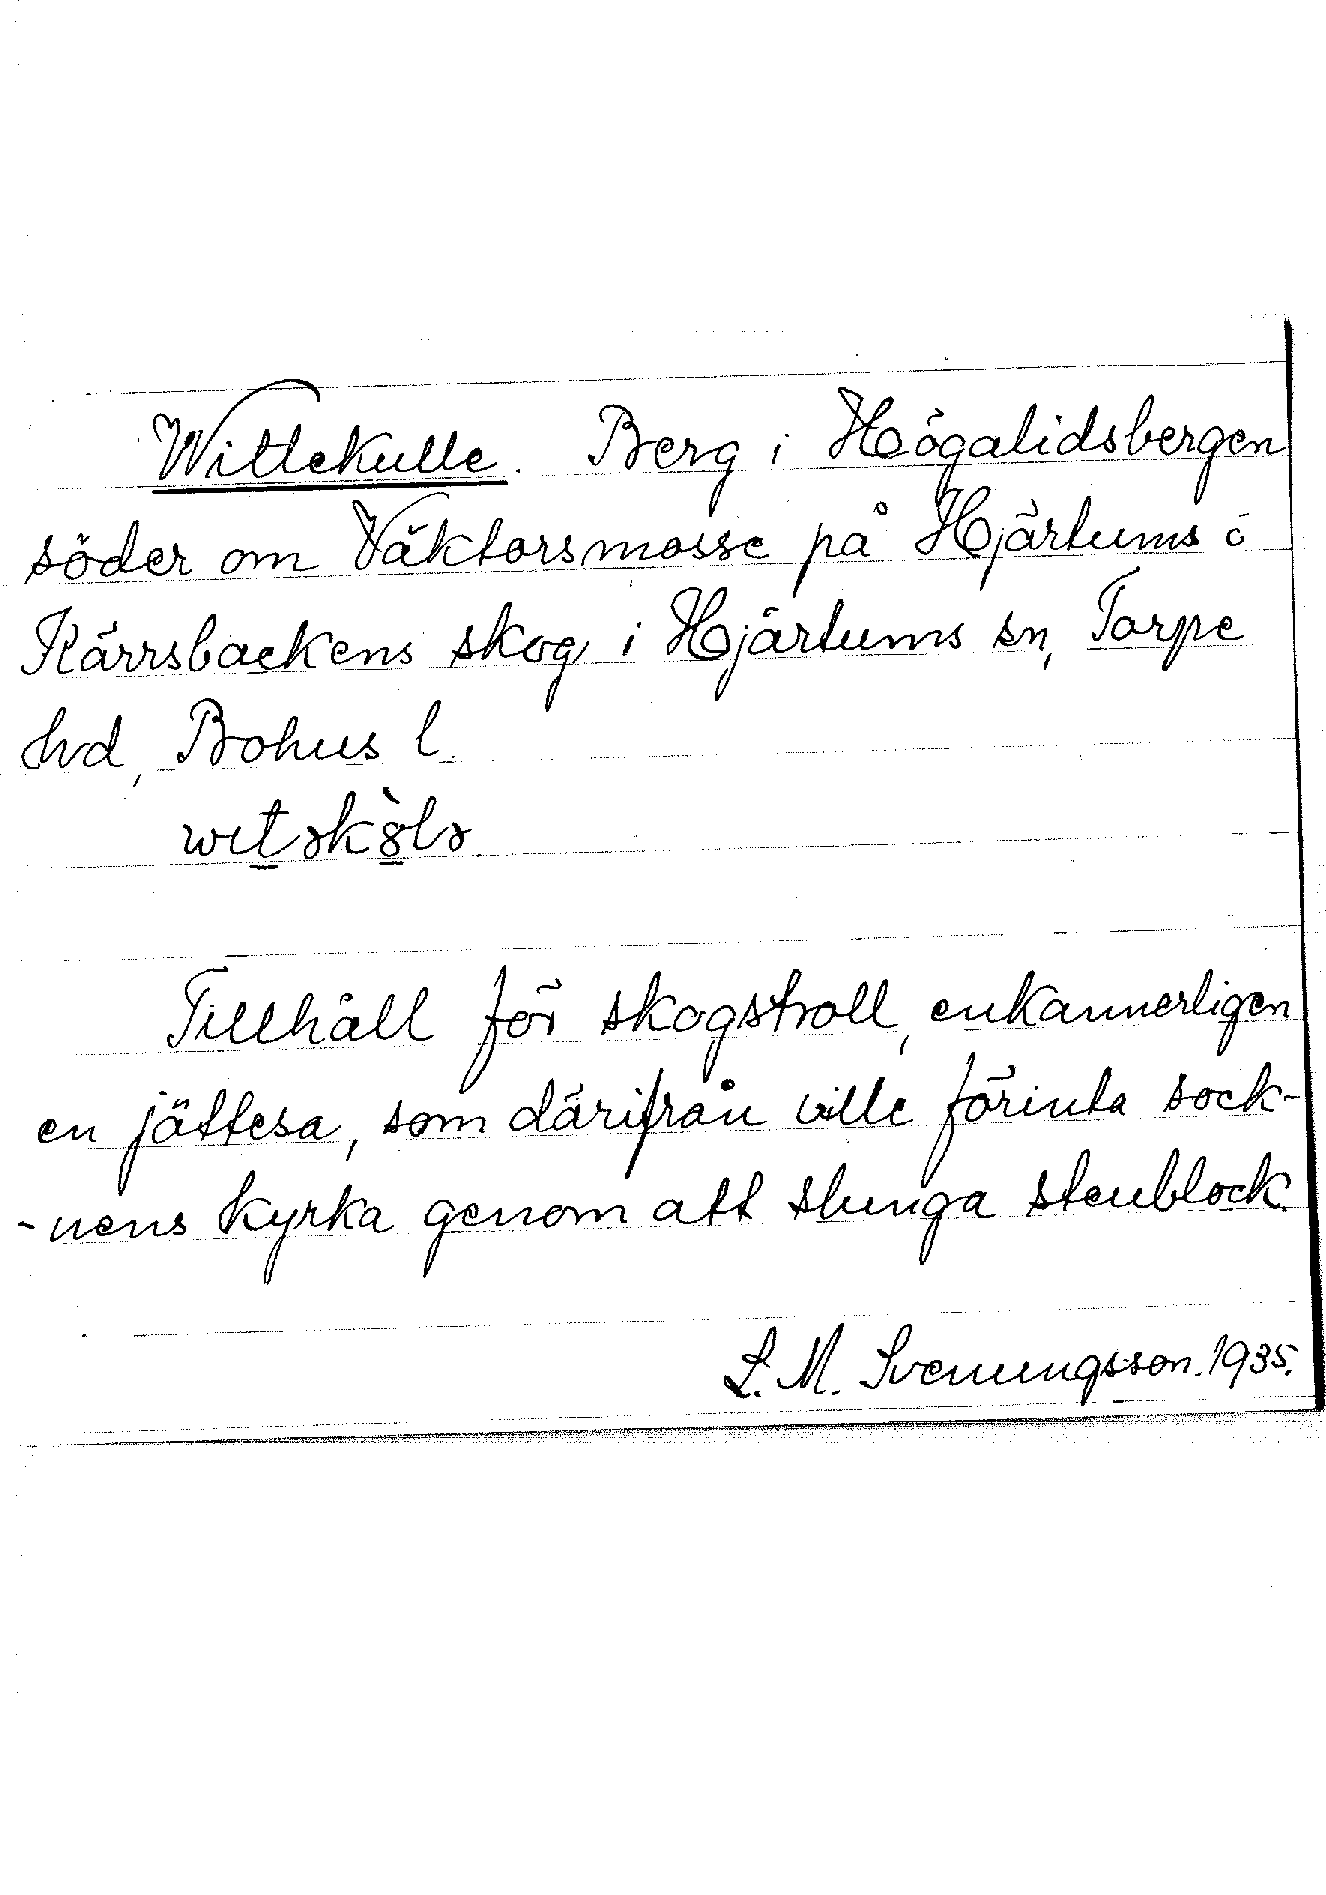 Wittekulle. Berg i Högalidsbergen
söder om Väktorsmosse på Hjärtums o
Kärrsbackens skog i Hjärtums sn, Torpe
hd, Bohus l.
witəkòlə
Tillhåll för skogstroll, enkannerligen
en jättesa, som därifrån ville förinta sock-
-nens kyrka genom att slunga stenblock.
L. M. Svenungsson. 1935.